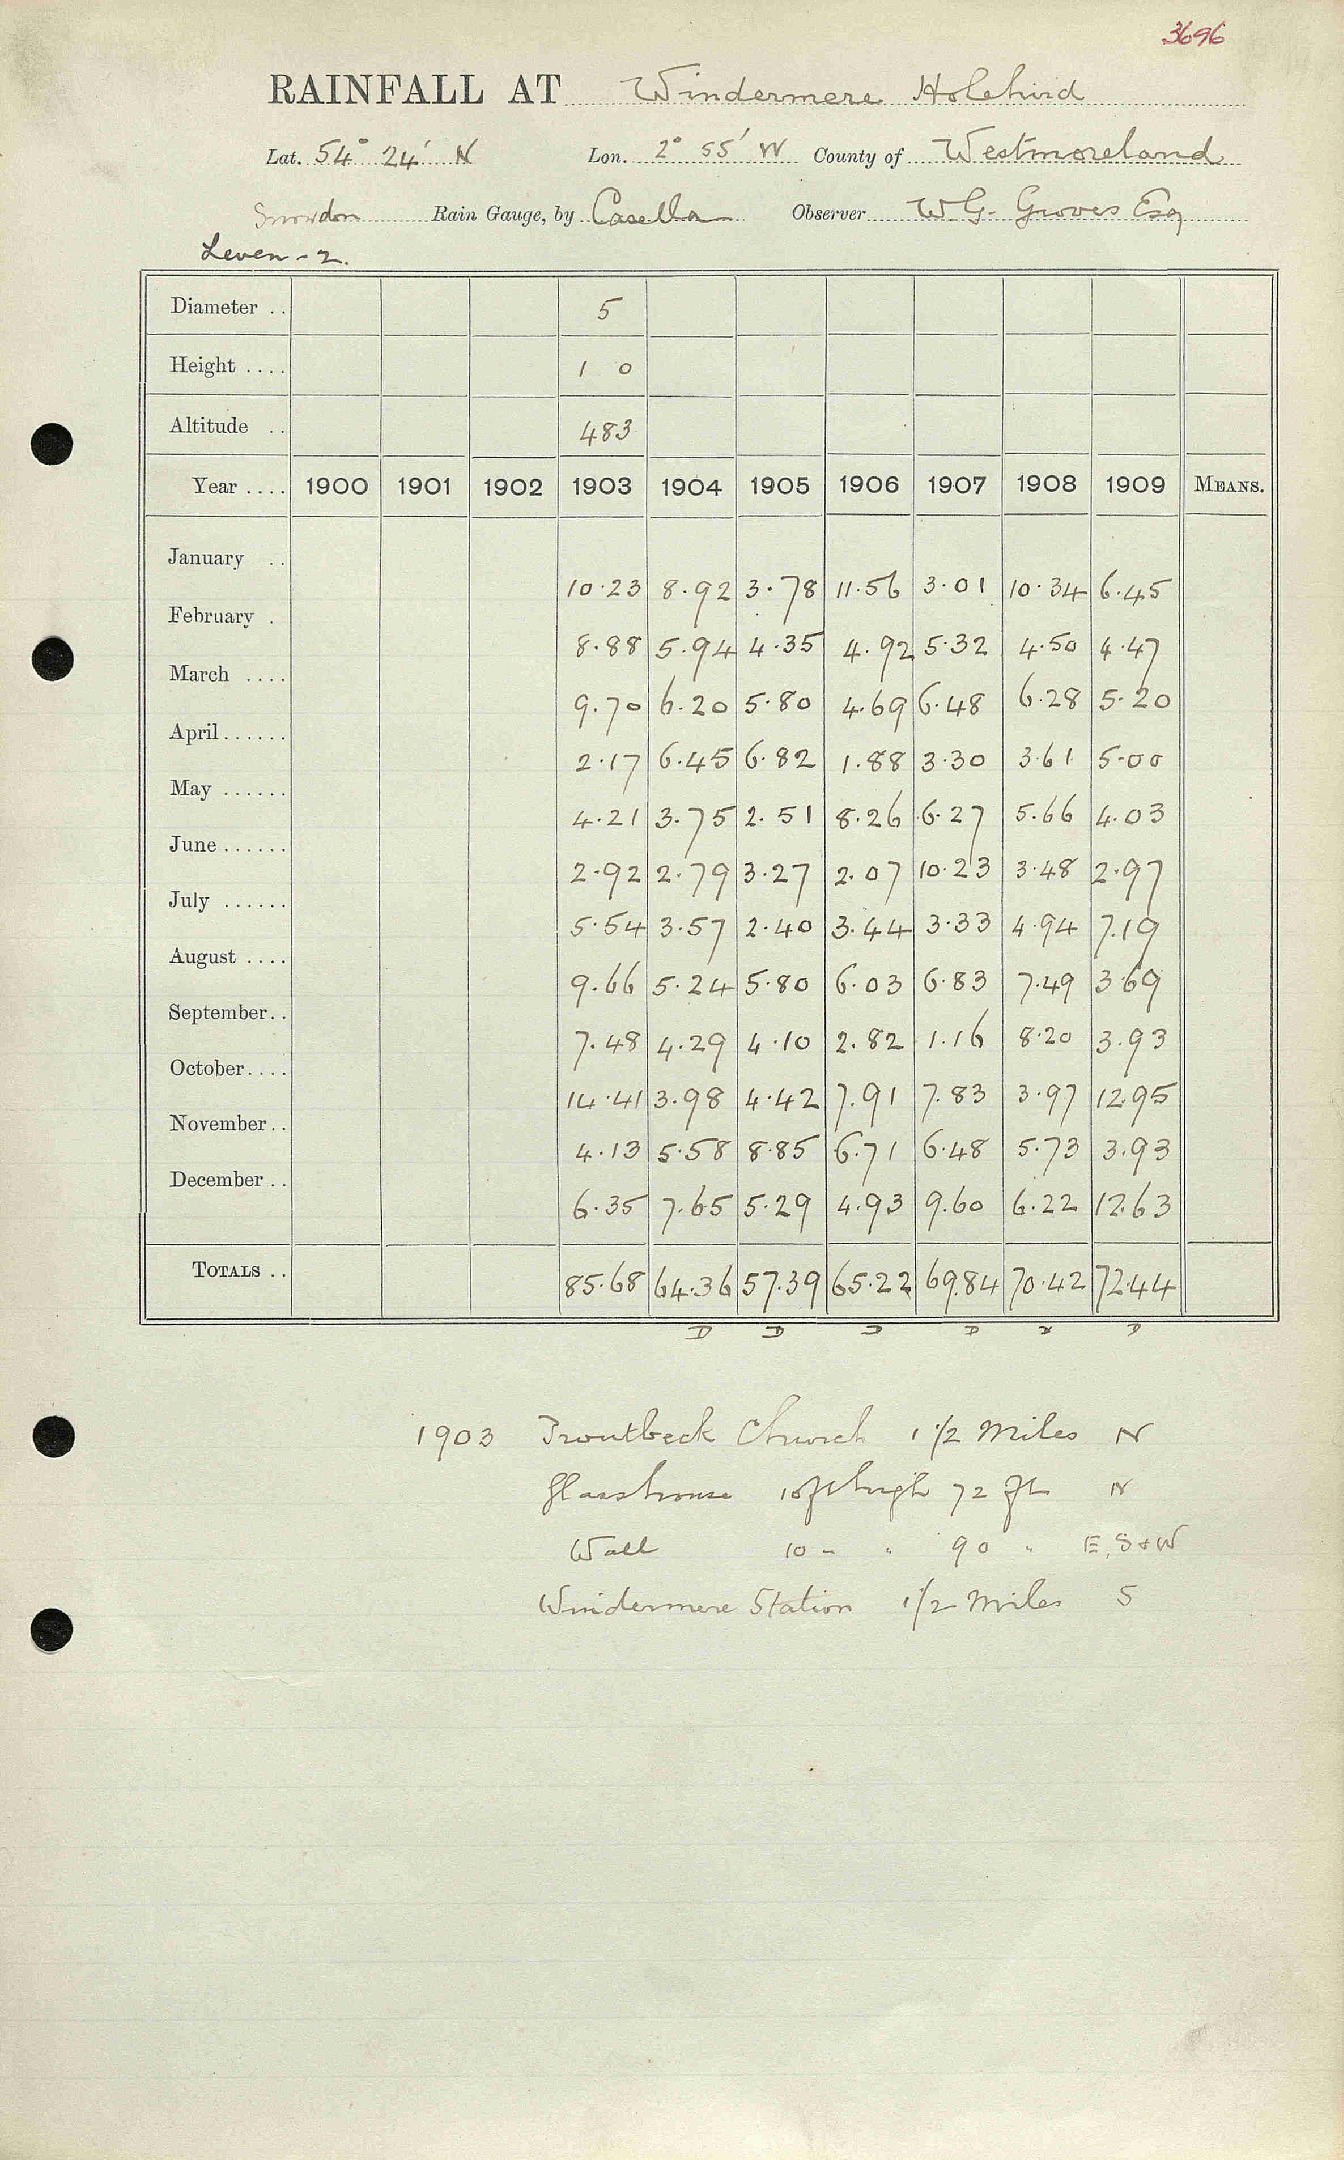 3696
RAINFALL AT Windermere Holehird
Lat. 54° 24' N Lon. 2° 55' W County of Westmoreland
Snowdon Rain Gauge, by Casella Observer W G. Groves Esq
Leven - 2.
Diameter .. 5
Height .... 1 0
Altitude .. 483
Year .... 1900 1901 1902 1903 1904 1905 1906 1907 1908 1909 MEANS.
January .. 10.23 8.92 3.78 11.56 3.01 10.34 6.45
February . 8.88 5.94 4.35 4.92 5.32 4.50 4.47
March .... 9.70 6.20 5.80 4.69 6.48 6.28 5.20
April...... 2.17 6.45 6.82 1.88 3.30 3.61 5.00
May ...... 4.21 3.75 2.51 8.26 6.27 5.66 4.03
June ...... 2.92 2.79 3.27 2.07 10.23 3.48 2.97
July ...... 5.54 3.57 2.40 3.44 3.33 4.94 7.19
August .... 9.66 5.24 5.80 6.03 6.83 7.49 3.69
September.. 7.48 4.29 4.10 2.82 1.16 8.20 3.93
October.... 14.41 3.98 4.42 7.91 7.83 3.97 12.95
November.. 4.13 5.58 8.85 6.71 6.48 5.73 3.93
December .. 6.35 7.65 5.29 4.93 9.60 6.22 12.63
TOTALS .. 85.68 64.36 57.39 65.22 69.84 70.42 72.44
D D D D D
1903 Troutbeck Church 1 1/2 Miles N
Glasshouse 10 ft high 72 ft N
Wall 10 " " 90 " E, S & W
Windermere Station 1 1/2 Miles S